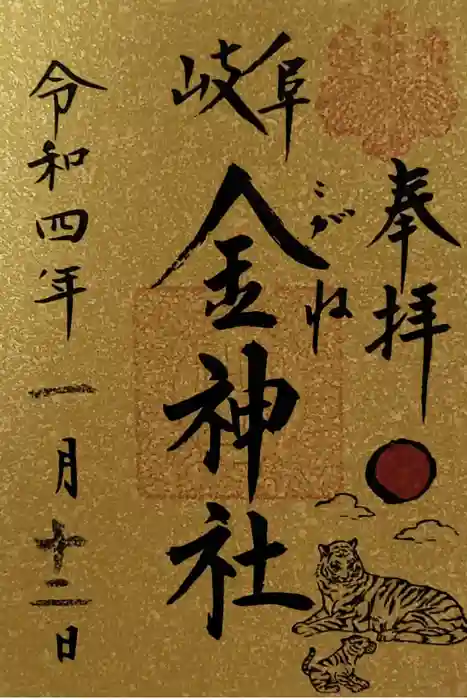 奉拝
岐阜
こがね
金神社
令和四年一月十二日